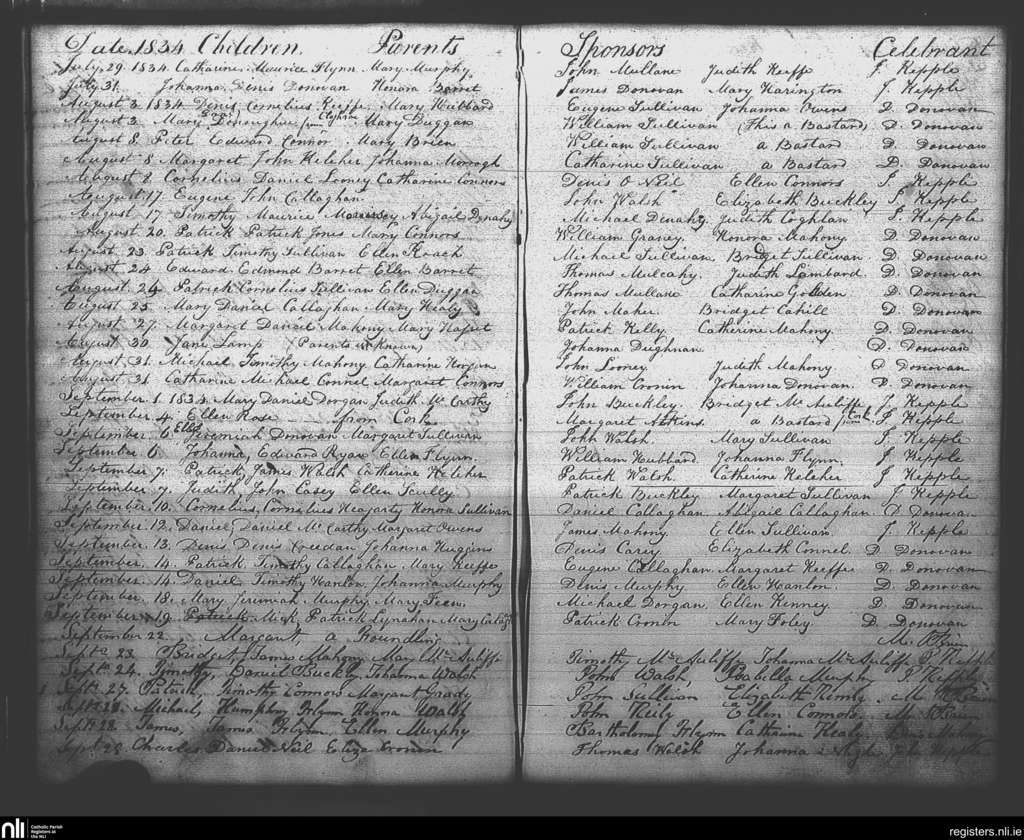 Date. 1834 Children. Parents Sponsors Celebrant
July 29. 1834. Catharine. Maurice Flynn Mary Murphy. John Mullane Judith Keeffe J. Kepple
July 31. Johanna, Denis Donovan Honora Barret James Donovan Mary Harington J. Kepple
August 3. 1834. Denis, Cornelius Keeffe, Mary Hubbard Eugene Sullivan Johanna Owens D. Donovan
August 3. Mary Donoughue from Cloghroe Mary Duggan William Sullivan (This a Bastard) D. Donovan
August 8. Peter Edward Connor. Mary Brien William Sullivan a Bastard D. Donovan
August 8. Margaret John Keleher Johanna Morrogh Catharine Sullivan a Bastard D. Donovan
August 8. Cornelius Daniel Looney Catharine Connors Denis O Neil Ellen Connors J. Kepple
August 17. Eugene John Callaghan John Walsh Elizabeth Buckley J. Kepple
August 17. Timothy Maurice Abigail Denahy Michael Denahy Judith Coghlan J. Kepple
August 20. Patrick Patrick Jones Mary Connors William Gravey. Honora Mahony D. Donovan
August 23. Patrick Timothy Sullivan Ellen Roach Michael Sullivan Bridget Sullivan D. Donovan
August 24. Edward Edmond Barret Ellen Barret Thomas Mulcahy. Judith Lombard D. Donovan
August 24. Patrick Cornelius Sullivan Ellen Duggan Thomas Mullane Catharine Golden. D. Donovan
August 25. Mary Daniel Callaghan Mary Healy John Maher. Bridget Cahill D. Donovan
August 27. Margaret Daniel Mahony Mary Patrick Kelly Catherine Mahony. D. Donovan
August 30. Jane Lamp (Parents unknown) Johanna Dughnan D. Donovan
August 31. Michael Timothy Mahony Catharine Horgan John Looney Judith Mahony D Donovan
August 31 Catharine Michael Connel Margaret Connors William Cronin Johanna Donovan. D. Donovan
September 1. 1834. Mary Daniel Dorgan Judith Mc Carthy John Buckley. Bridget Mc Auliffe J. Kepple
September 4. Ellen Rose from Cork Margaret Atkins a Bastard from Cork J. Kepple
September. 6 Ellen Jeremiah Donovan Margaret Sullivan John Walsh Mary Sullivan J. Kepple
September 6. Johanna, Edward Ryan Ellen Flynn. William Hubbard. Johanna Flynn. J Kepple
September 7. Patrick, James Walsh Catherine Keleher Patrick Walsh. Catherine Keleher J Kepple
September. 7. Judith, John Casey Ellen Scully Patrick Buckley Margaret Sullivan J Kepple
September. 10. Cornelius, Cornelius Heagarty Honora Sullivan Daniel Callaghan Abigail Callaghan. D. Donovan
September. 12. Daniel, Daniel Mc Carthy Margaret Owens James Mahony Ellen Sullivan J. Kepple
September. 13. Denis Denis Creedan Johanna Huggins Denis Carey Elizabeth Connel. D. Donovan
September. 14. Patrick Timothy Callaghan Mary Keeffe Eugene Callaghan Margaret Keeffe D. Donovan
September. 14. Daniel Timothy Hanlon Johanna Murphy Denis Murphy Ellen Hanlon. D. Donovan
September. 18. Mary Jeremiah Murphy Mary Feen. Michael Dorgan. Ellen Kenney. D. Donovan
September 19. Patrick Mick, Patrick Lynahan Mary Patrick Cronin Mary Foley D. Donovan
September 22. Margaret, a Foundling M. O'Brien
Septr. 23. Bridget, James Mahony Mary Mc Auliffe Timothy Mc Auliffe Johanna Mc Auliffe J. Kepple
Septr. 24. Timothy, Daniel Buckley Johanna Walsh John Walsh, Isabella Murphy J. Kepple
Septr. 27. Patrick, Timothy Connors Margaret Grady John Sullivan Elizabeth M. O'Brien
Septr 28. Michael, Humphry Flynn Honora Walsh John Reily Ellen Connors M. O'Brien
Septr 28. James, James Flynn, Ellen Murphy Bartholomew Flynn Catharine Healy
Septr 28 Charles Daniel Neil Eliza Cronin Thomas Walsh Johanna
nli Catholic Parish Registers at the NLI
registers.nli.ie